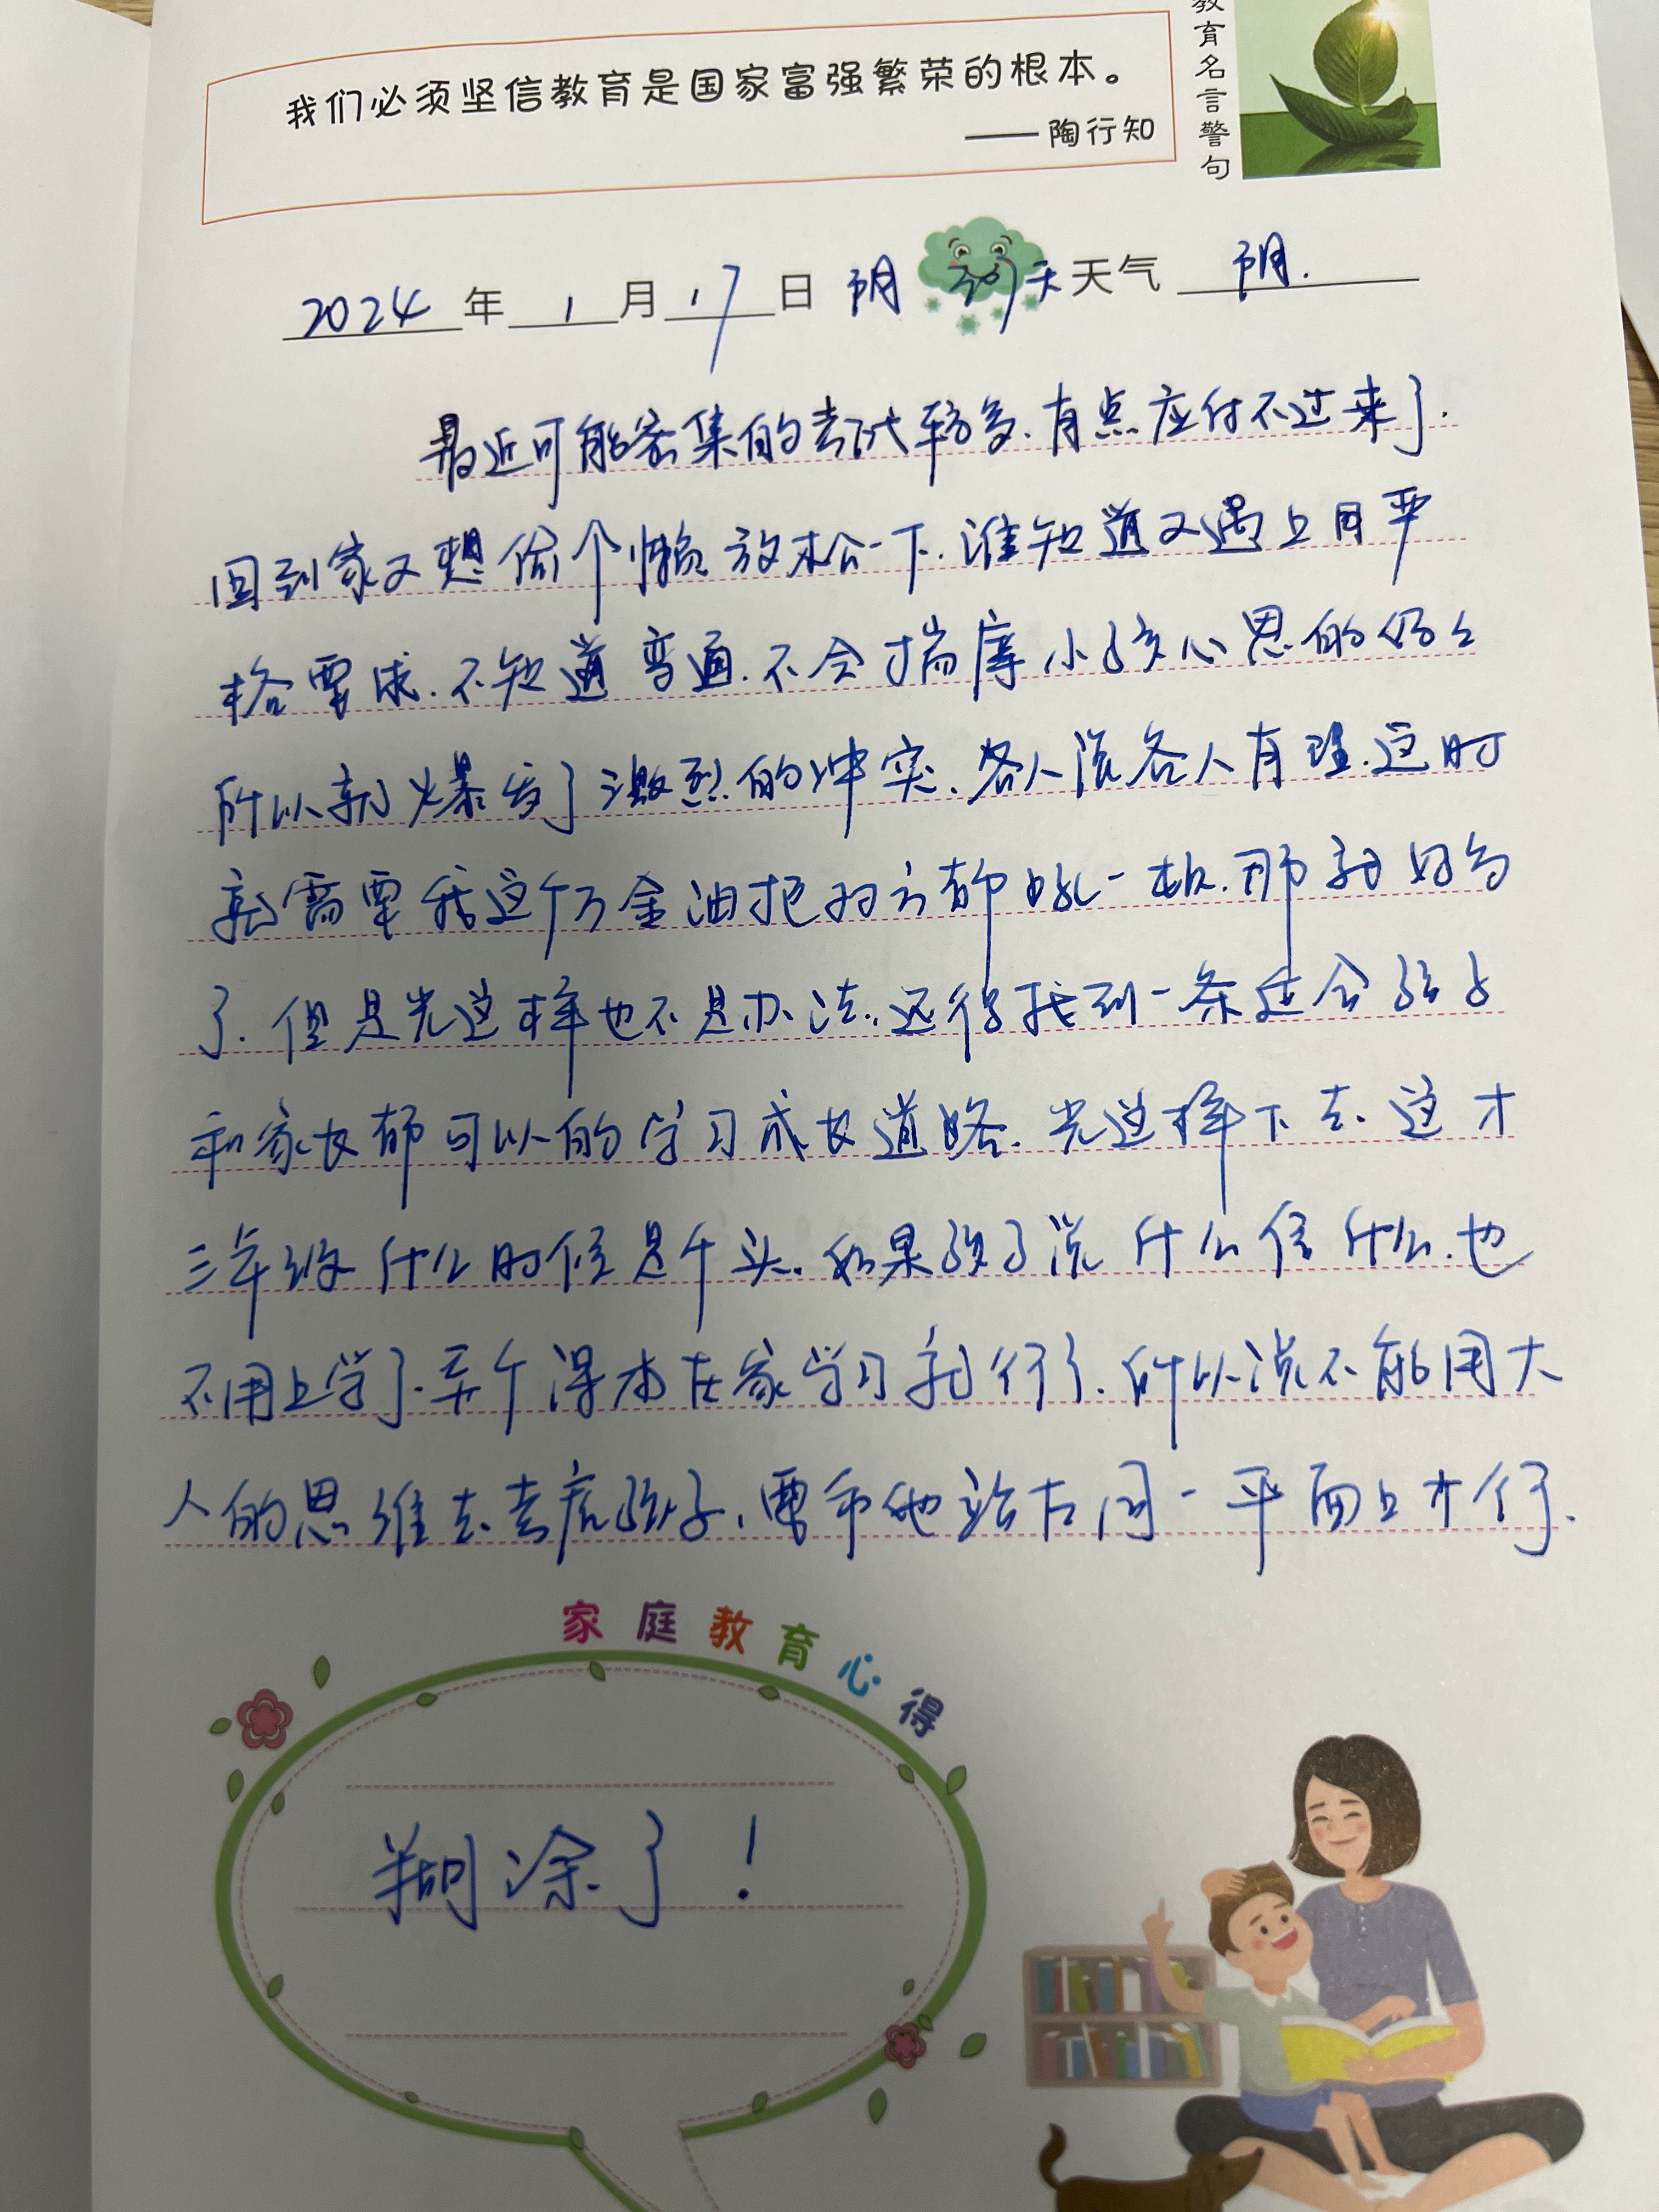 我们必须坚信教育是国家富强繁荣的根本。
——陶行知
教育名言警句
2024年1月17日 阴 天气 阴.
最近可能密集的考试较多.有点应付不过来了.
回到家又想偷个懒放松一下.谁知道又遇上月严
格要求.不知道弯通.不会揣摩小孩心思的妈妈
所以就爆发了激烈的冲突.各人说各人有理.这时
就需要我这个万金油把双方都哄一哄.那就好多
了.但是光这样也不是办法.还得找到一条适合孩子
和家长都可以的学习成长道路.光这样下去.这才
三年级什么时候是个头.如果孩子说什么信什么.也
不用上学了.弄个课本在家学习就行了.所以说不能用大
人的思维去考虑孩子,要和他站在同一平面上才行.
家庭教育心得
糊涂了!